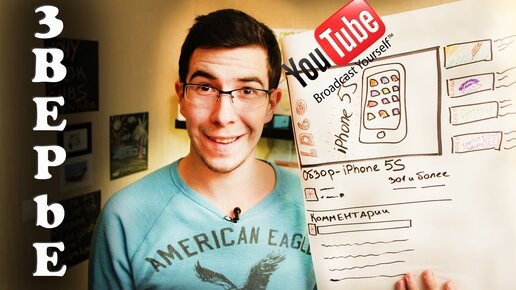 ЗВЕРЬЕ
YouTube
Broadcast Yourself™
iPhone 5S
Обзор-iPhone 5S
301 и более
Комментарии
AMERICAN EAGLE